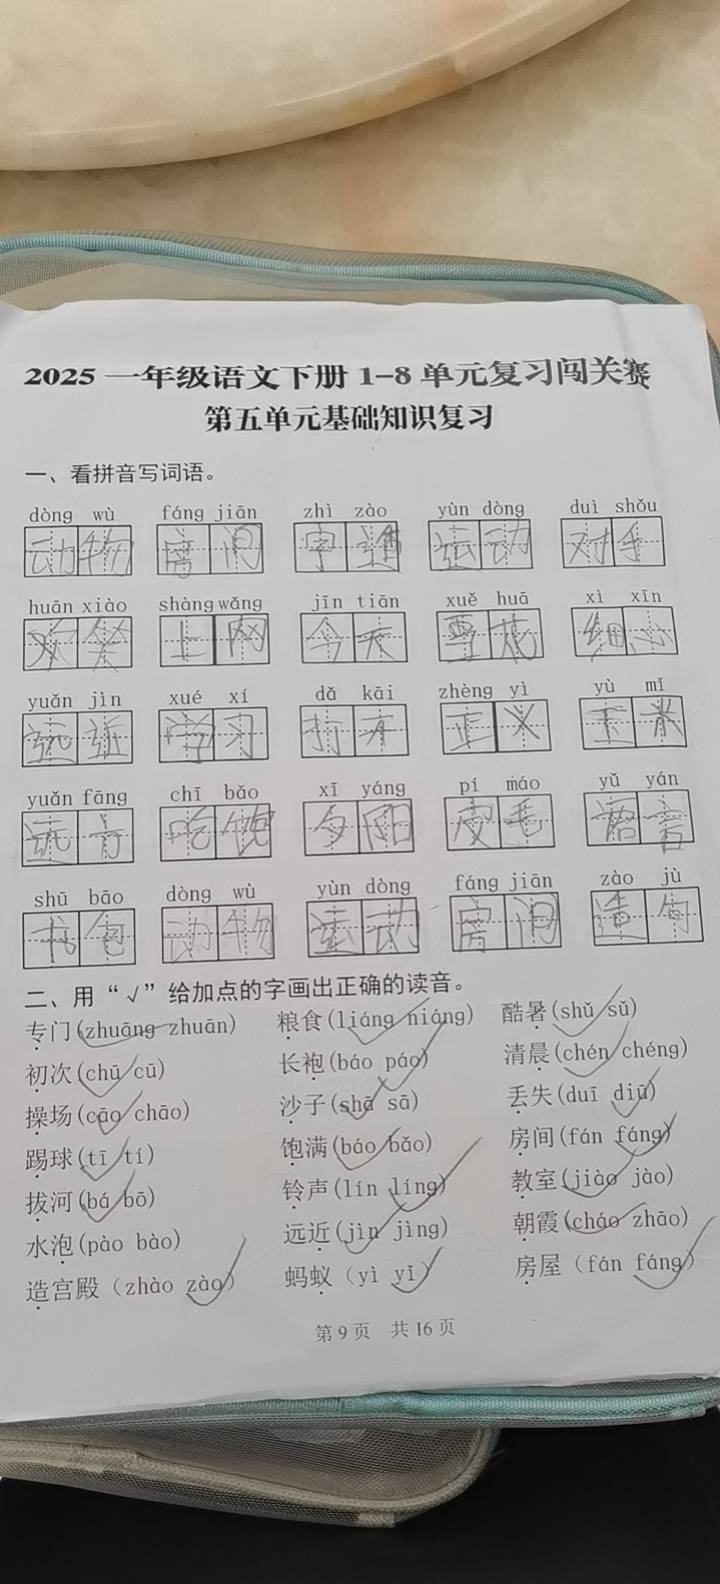 2025 一年级语文下册 1-8 单元复习闯关赛
第五单元基础知识复习
一、看拼音写词语。
dòng wù fáng jiān zhì zào yùn dòng duì shǒu
动物 房间 造 运动 对手
huān xiào shàng wǎng jīn tiān xuě huā xì xīn
欢笑 上网 今天 雪花 细心
yuǎn jìn xué xí dǎ kāi zhèng yì yù mǐ
远近 学习 打开 正义 玉米
yuǎn fāng chī bǎo xī yáng pí máo yǔ yán
远方 吃饱 夕阳 皮毛 语言
shū bāo dòng wù yùn dòng fáng jiān zào jù
书包 动物 运动 房间 造句
二、用“√”给加点的字画出正确的读音。
专门(zhuāng zhuān) 粮食(liáng niáng) 酷暑(shǔ sǔ)
初次(chū cū) 长袍(báo páo) 清晨(chén chéng)
操场(cāo chāo) 沙子(shā sā) 丢失(duī diū)
踢球(tī tí) 饱满(báo bǎo) 房间(fán fáng)
拔河(bá bō) 铃声(lín líng) 教室(jiào jào)
水泡(pào bào) 远近(jìn jìng) 朝霞(cháo zhāo)
造宫殿（zhào zào） 蚂蚁（yì yǐ） 房屋（fán fáng）
第 9 页 共 16 页